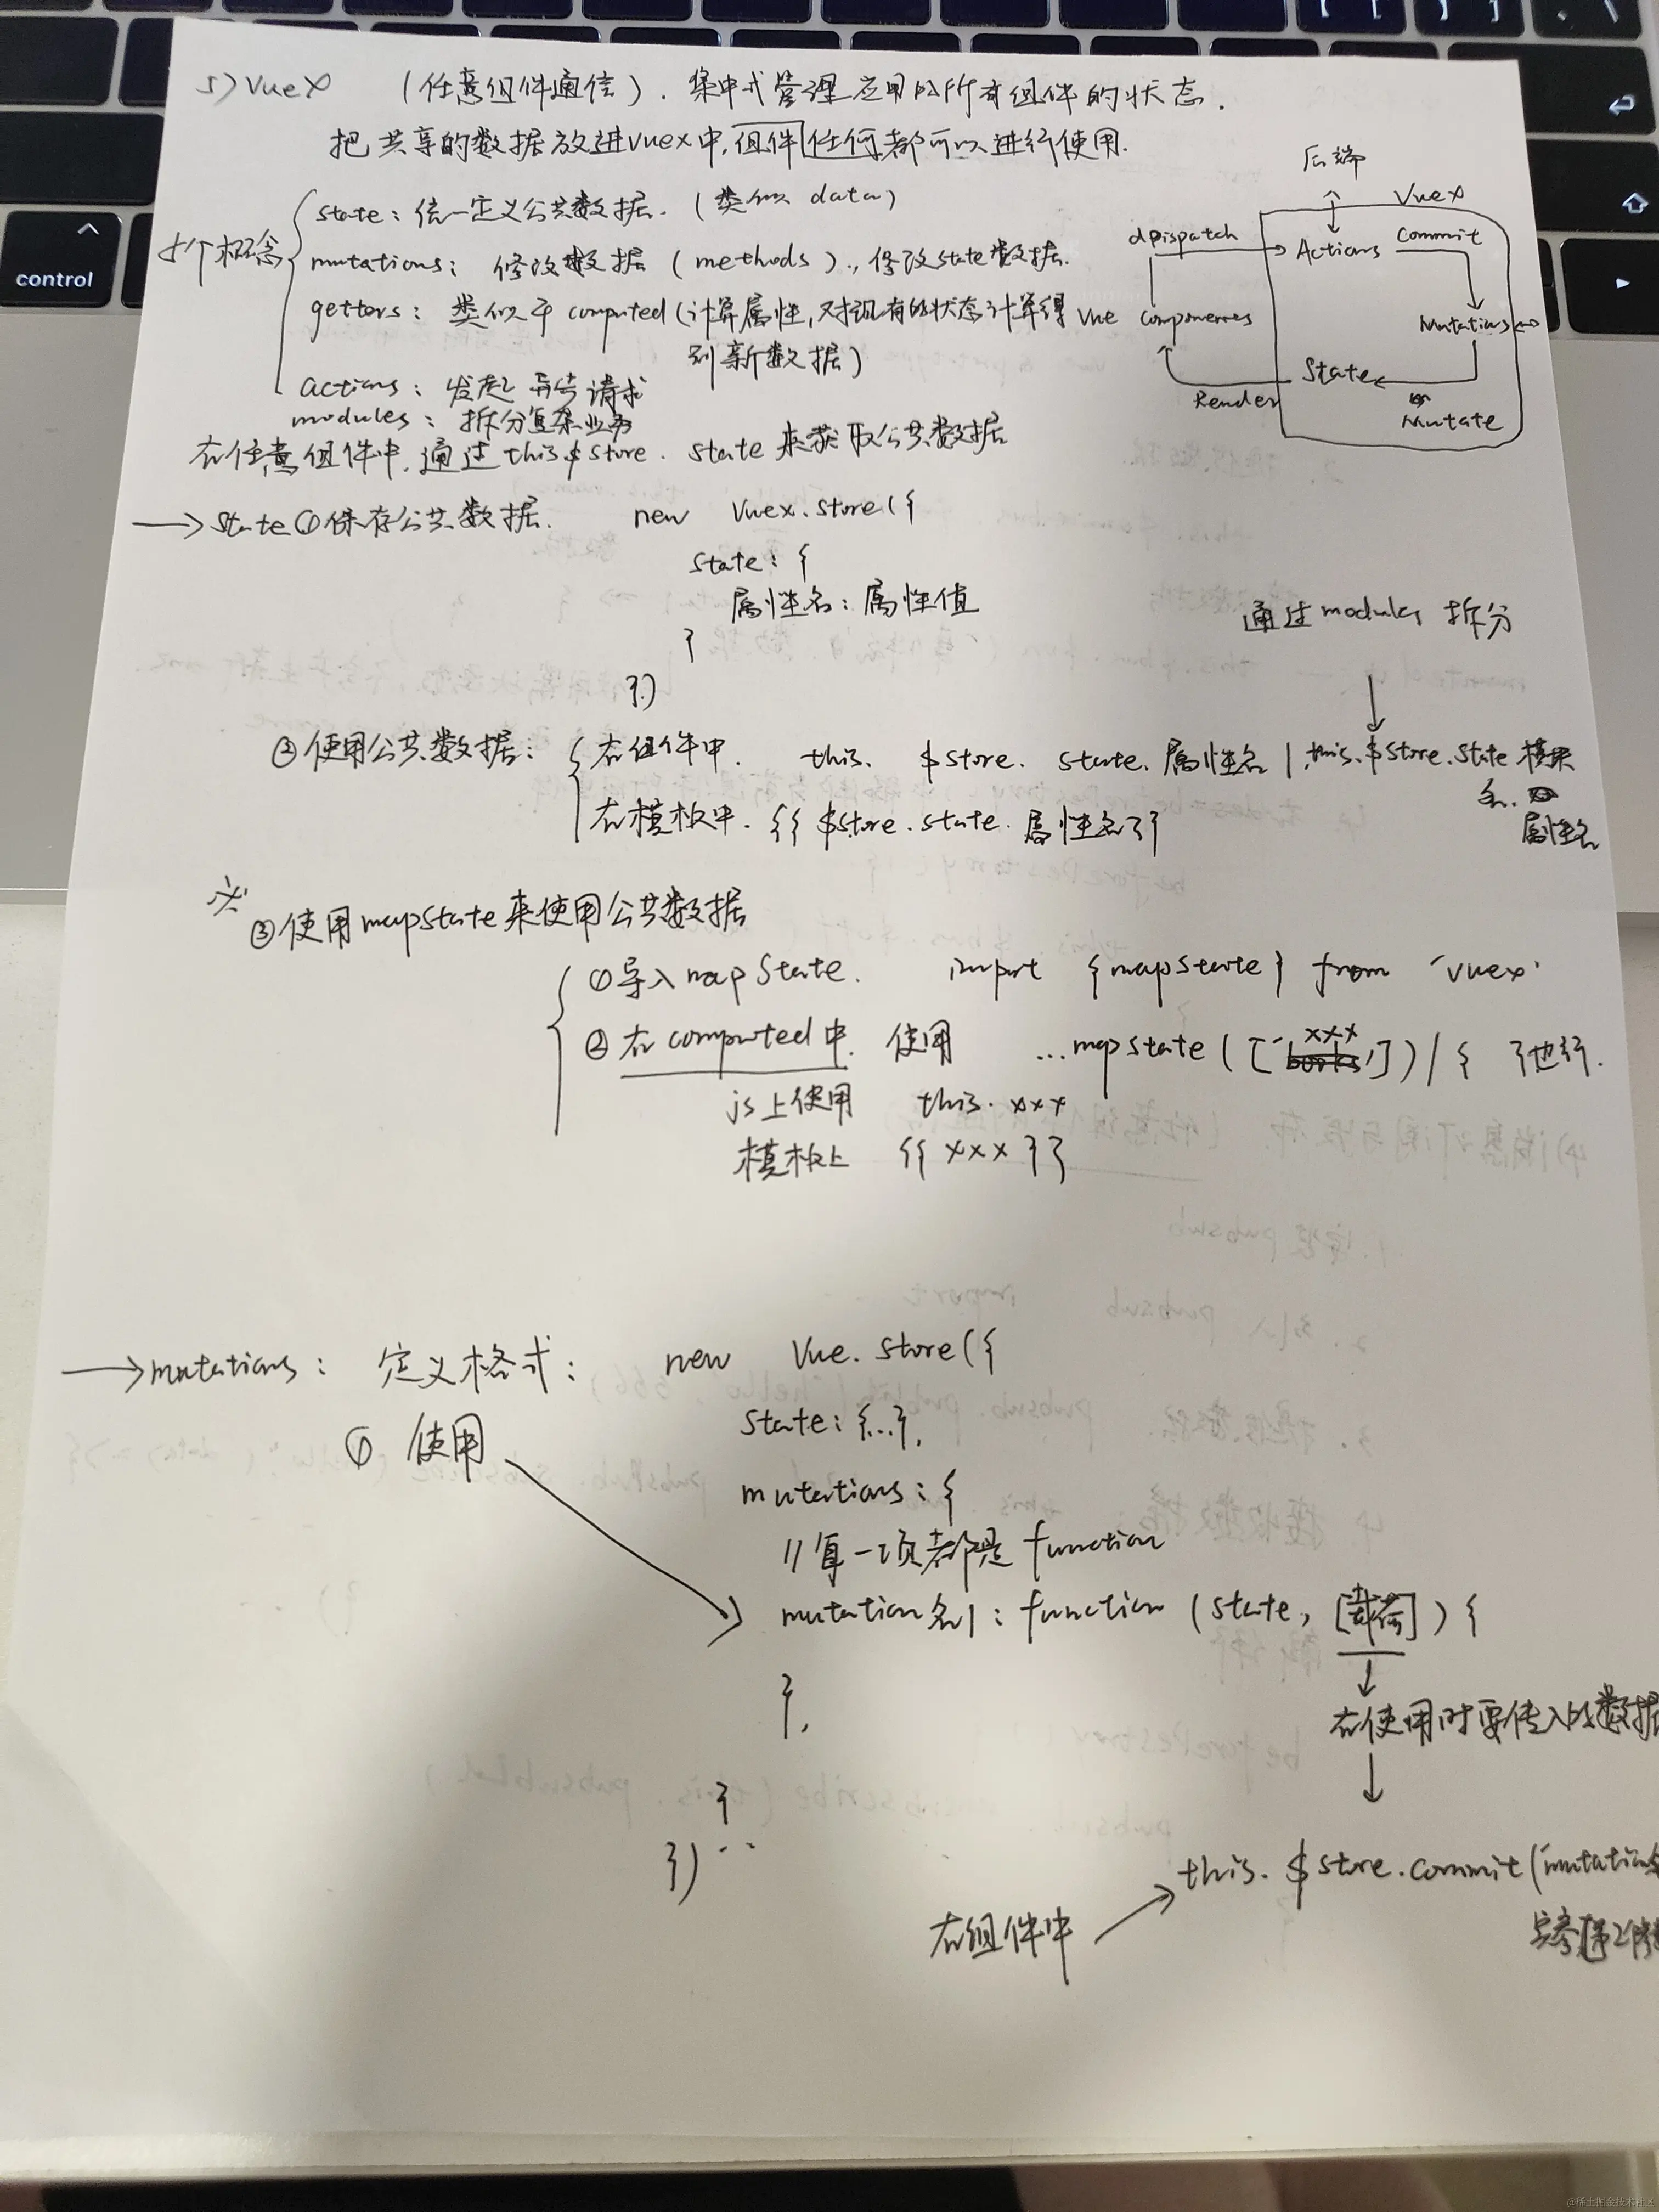 5) VueX (任意组件通信). 集中式管理应用的所有组件的状态.
把共享的数据放进vuex中,组件任何都可以进行使用.
5个概念
state: 统一定义公共数据. (类似 data)
mutations: 修改数据 (methods)., 修改state数据.
getters: 类似于 computed (计算属性,对现有的状态计算得
到新数据)
actions: 发起异步请求
modules: 拆分复杂业务
后端
Vuex
dispatch
Actions
Commit
Vue components
Mutations
State
Render
Mutate
在任意组件中,通过this.$store.state来获取公共数据
→ State ①保存公共数据. new Vuex.store({
state: {
属性名: 属性值
}
})
通过modules 拆分
②使用公共数据:
在组件中. this. $store. state. 属性名 | this.$store.state 模块
名.
属性名
在模板中. {{ $store.state. 属性名}}
※ ③使用mapState来使用公共数据
①导入mapState. import {mapState} from 'vuex'
②在computed中. 使用 ...mapState(['xxx']) / { }也行.
js上使用 this.xxx
模板上 {{ xxx }}
→ mutations: 定义格式: new Vue.store({
① 使用
state: {...},
mutations: {
//每一项都是function
mutation名1: function (state, [载荷]) {
},
在使用时要传入的数据
}
})
在组件中 → this.$store.commit('mutations
实参
control
@稀土掘金技术社区